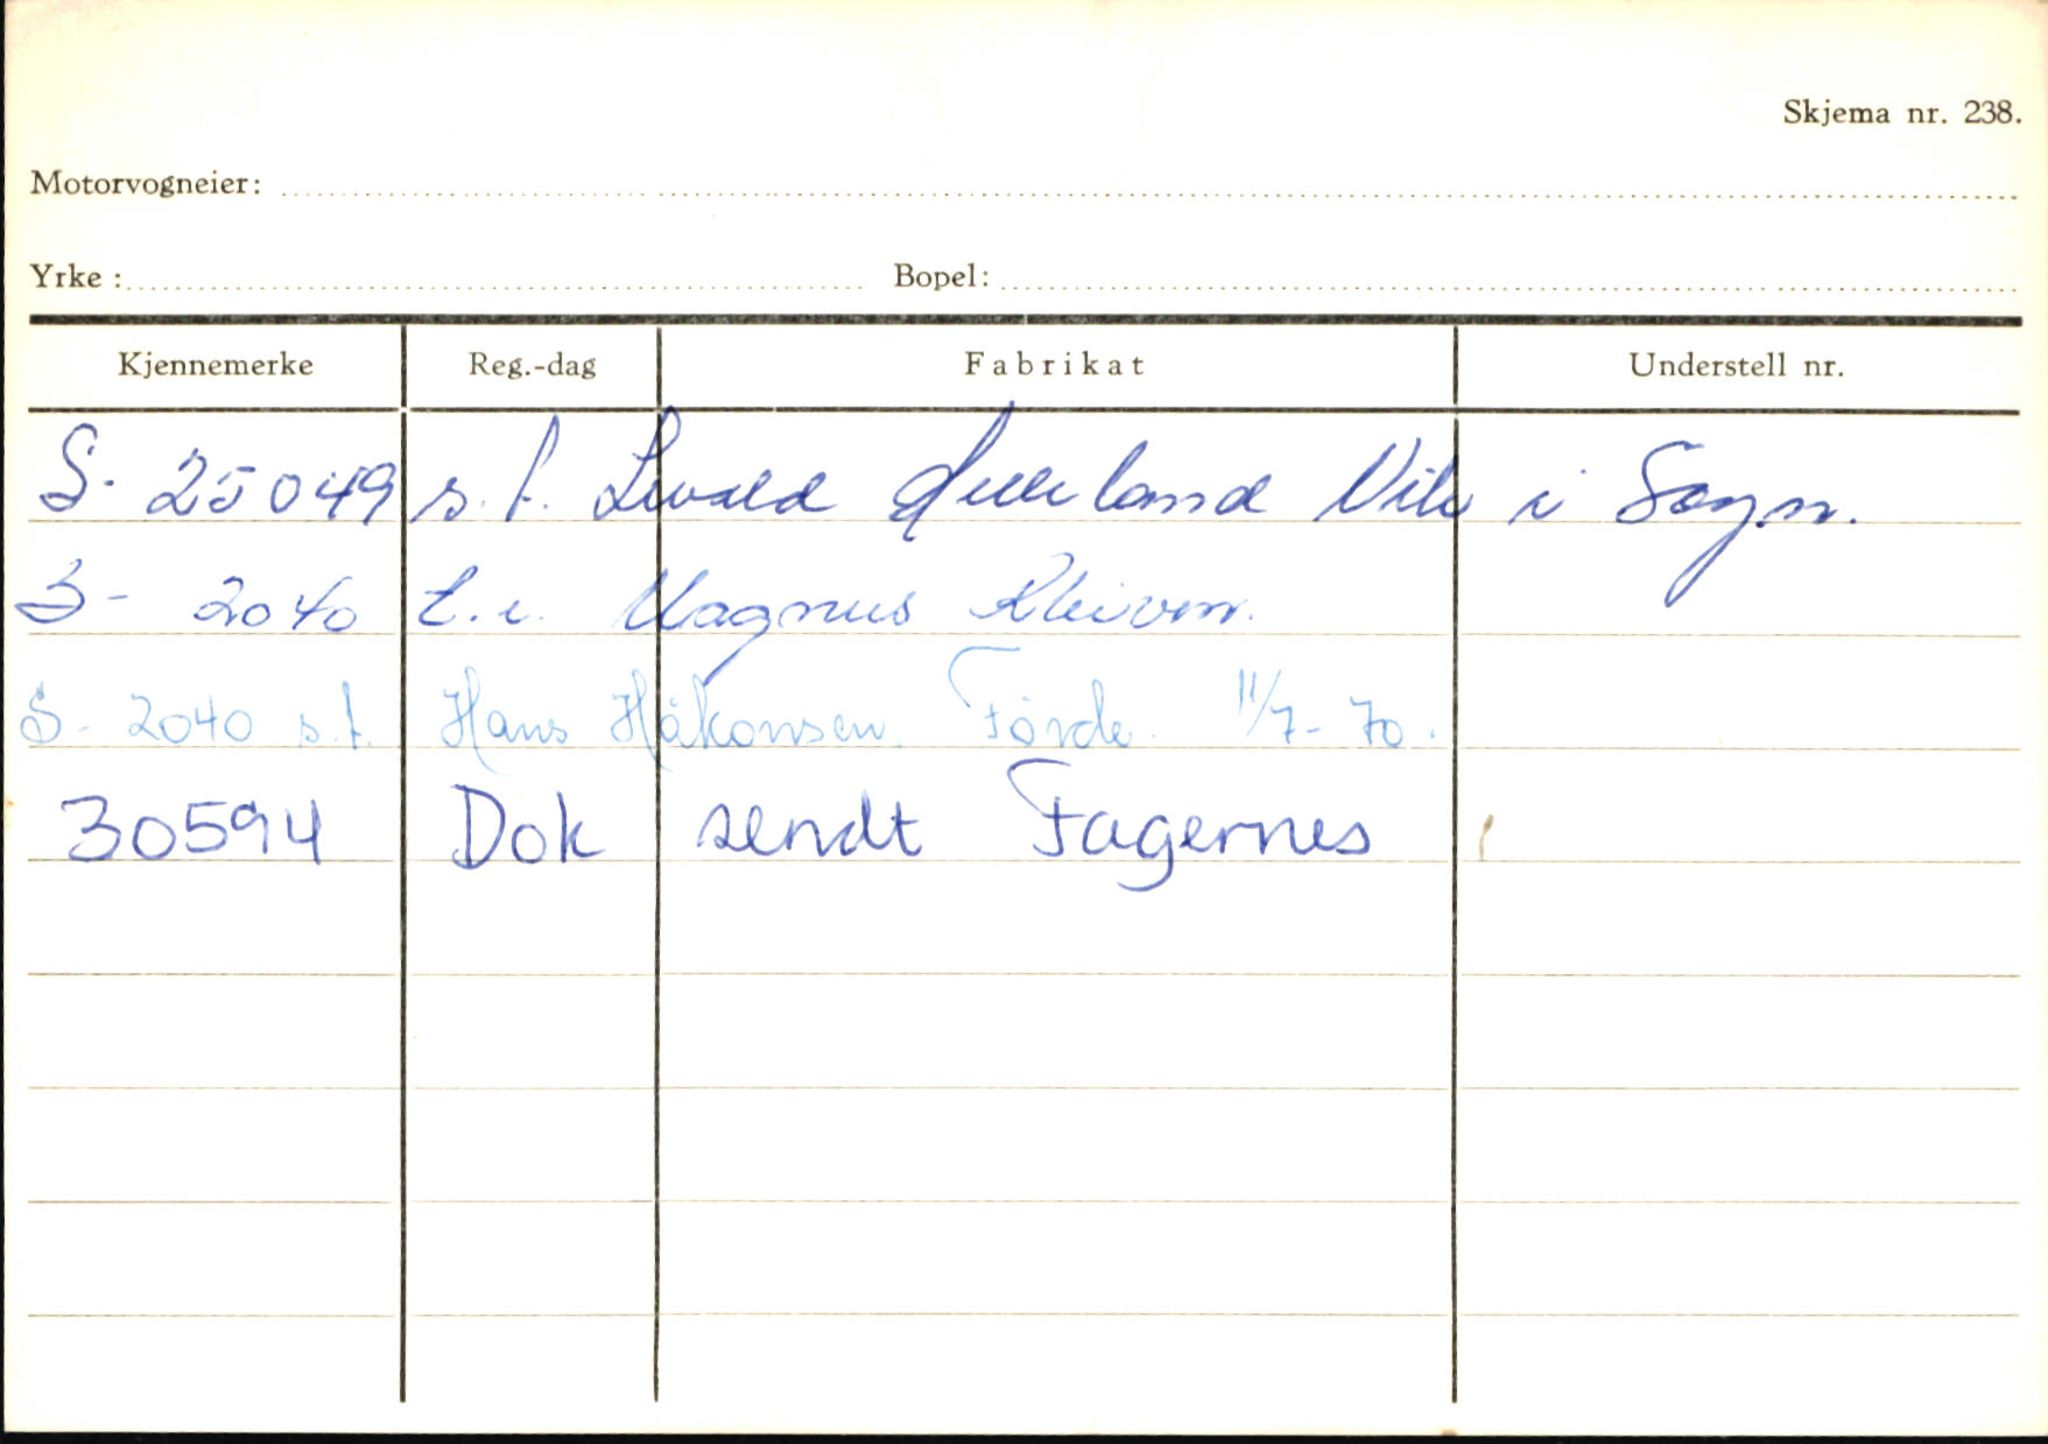 Skjema nr. 238.
Motorvogneier:
Yrke : Bopel:
Kjennemerke Reg.-dag Fabrikat Understell nr.
S- 25049 s.f. i Sogn.
S- 2040 t.i. Magnus Kleiven.
S- 2040 s.f. Hans Håkonsen. Förde. 11/7-70.
30594 Dok sendt Fagernes